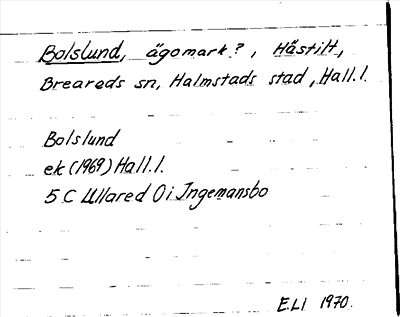 Bolslund, ägomark?, Hästilt,
Breareds sn, Halmstads stad, Hall.l.
Bolslund
ek (1969) Hall.l.
5 C Ullared 0 i Ingemansbo
E.LI 1970.